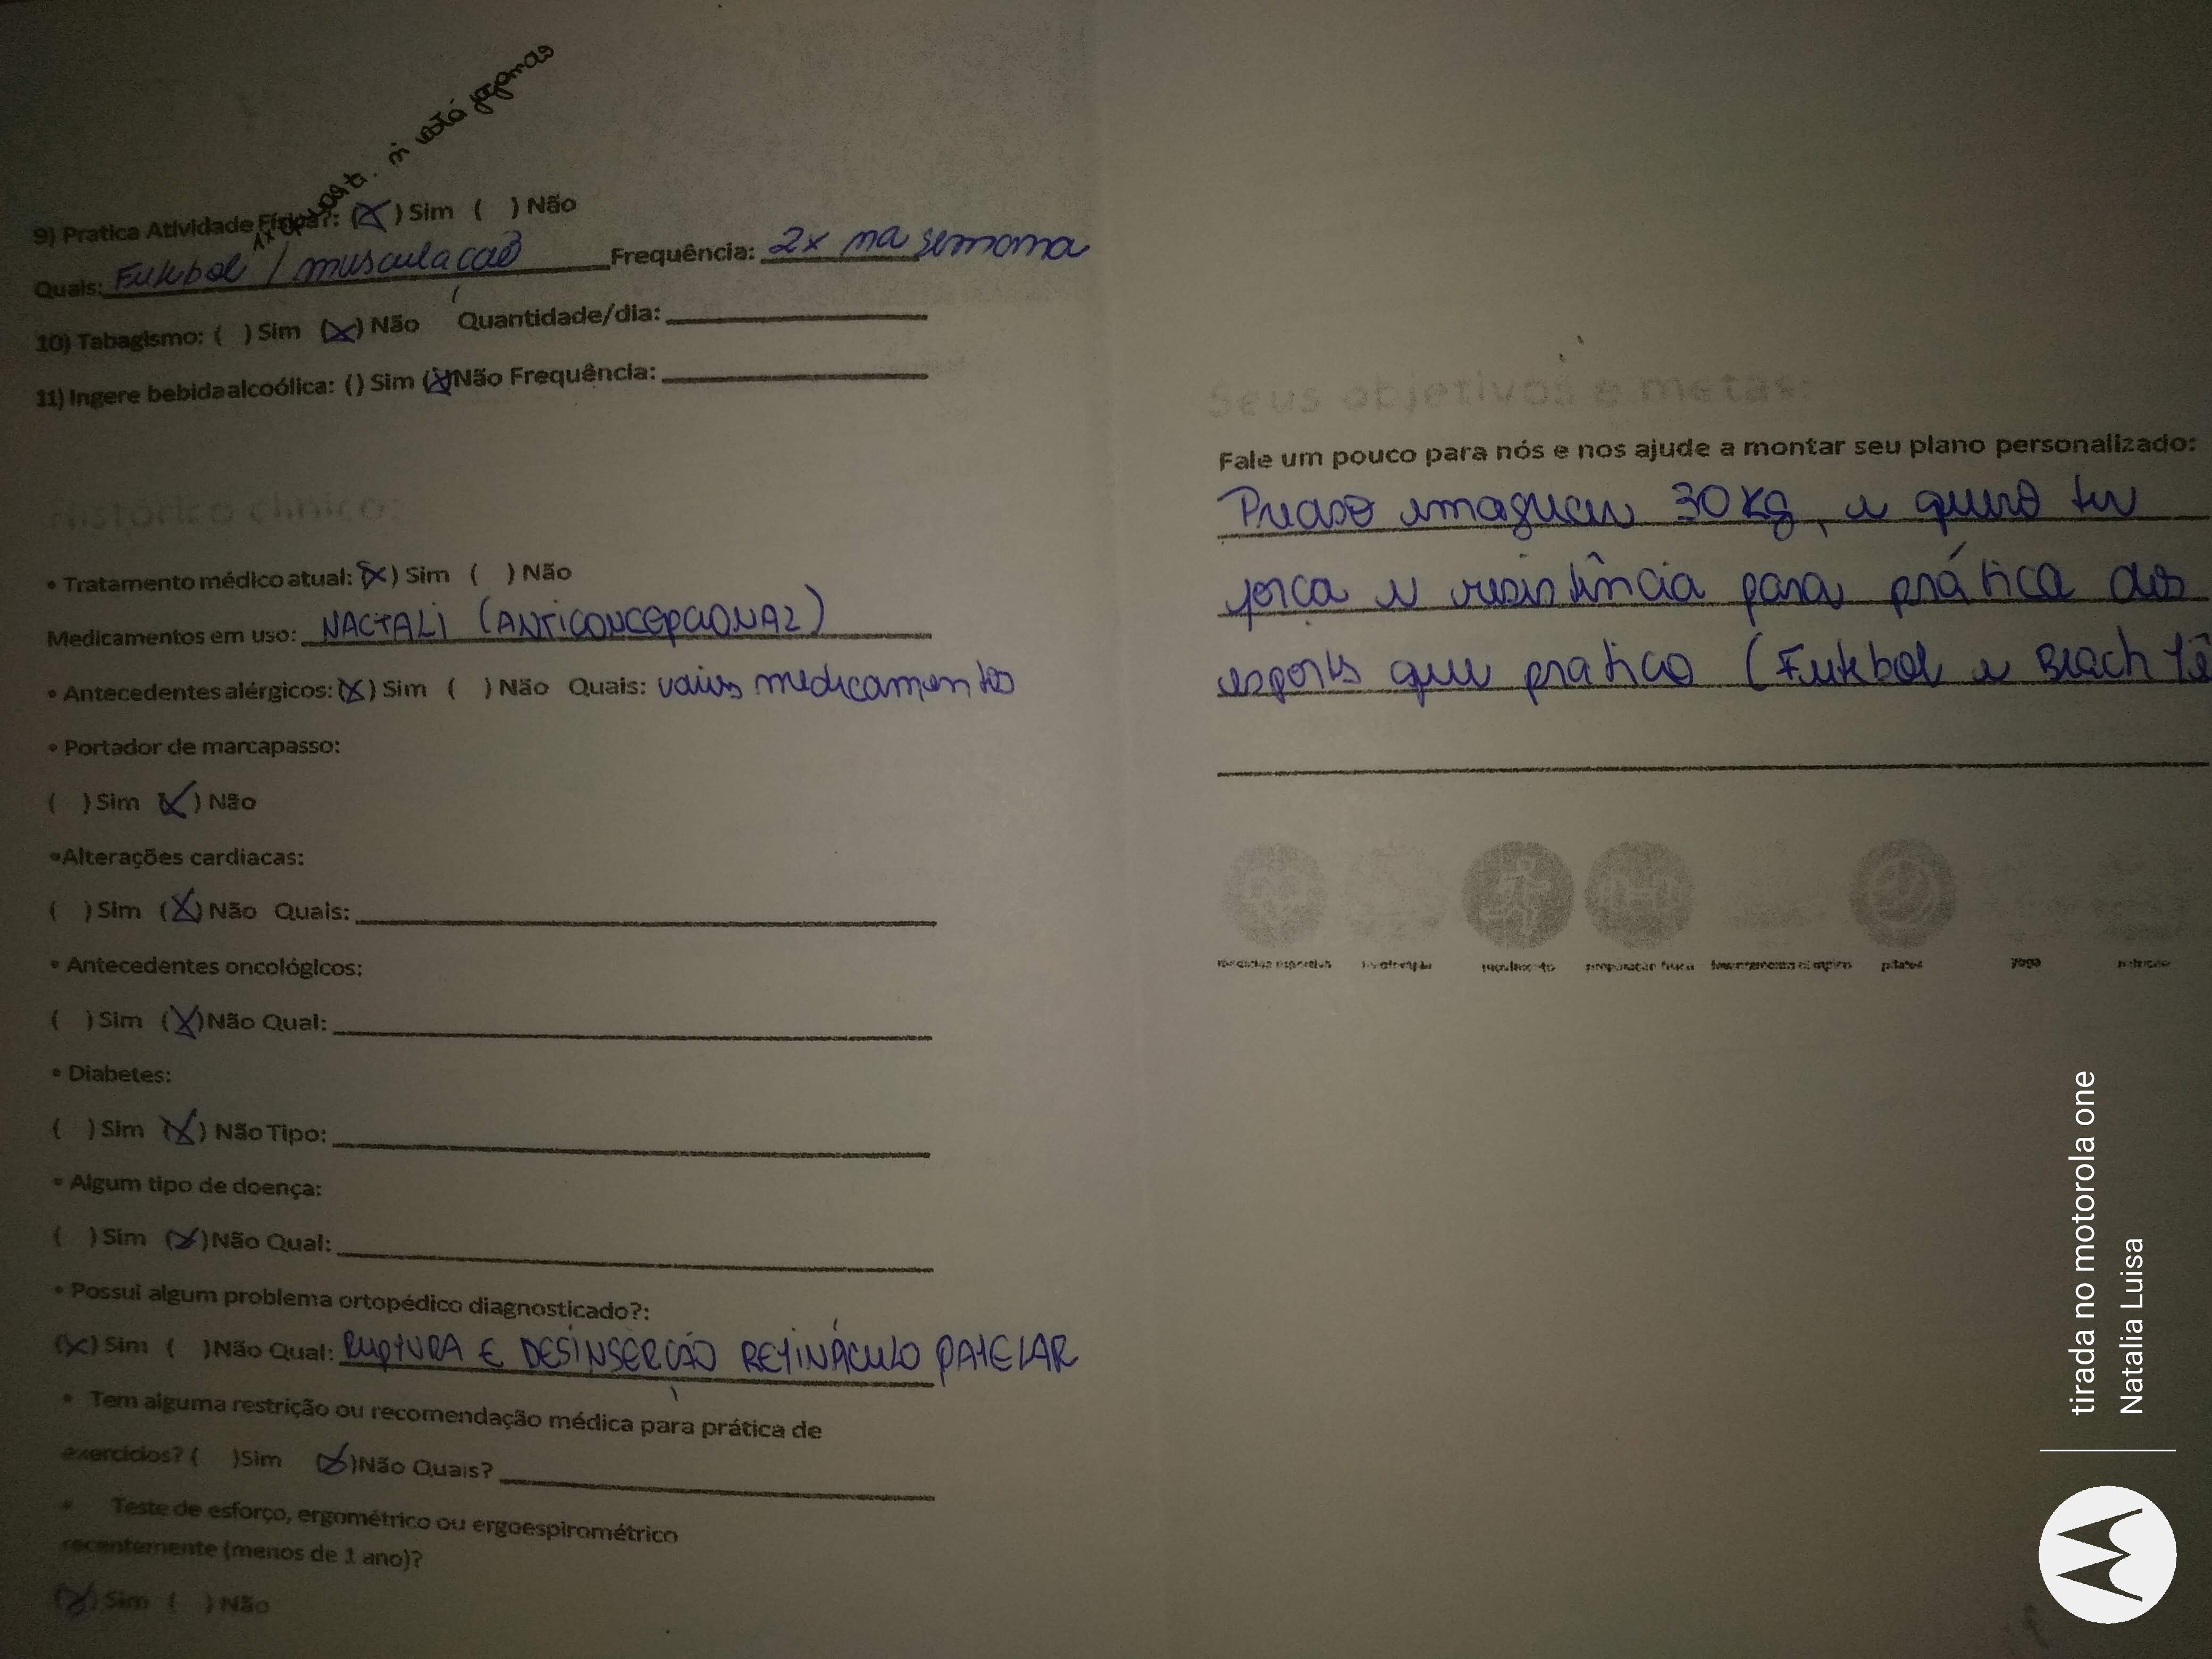 9) Pratica Atividade Física?: (X) Sim ( ) Não
Quais: Futebol / musculacaõ Frequência: 2x na semana
10) Tabagismo: ( ) Sim (X) Não Quantidade/dia:
11) Ingere bebida alcoólica: () Sim (X) Não Frequência:
histórico clínico:
• Tratamento médico atual: (X) Sim ( ) Não
Medicamentos em uso: NACTALI (ANTICONCEPCIONAL)
• Antecedentes alérgicos: (X) Sim ( ) Não Quais: vários medicamento
• Portador de marcapasso:
( ) Sim (X) Não
•Alterações cardíacas:
( ) Sim (X) Não Quais:
• Antecedentes oncológicos:
( ) Sim (X) Não Qual:
• Diabetes:
( ) Sim (X) Não Tipo:
• Algum tipo de doença:
( ) Sim (X) Não Qual:
• Possui algum problema ortopédico diagnosticado?:
(X) Sim ( ) Não Qual: RUPTURA E DESINSERÇÃO RETINÁCULO PATELAR
• Tem alguma restrição ou recomendação médica para prática de
exercícios? ( ) Sim (X) Não Quais?
• Teste de esforço, ergométrico ou ergoespirométrico
recentemente (menos de 1 ano)?
(X) Sim ( ) Não
seus objetivos e metas:
Fale um pouco para nós e nos ajude a montar seu plano personalizado:
Preciso emagrecer 30 kg, e quero ter
força e resistência para prática dos
esports que pratico (Futebol e Beach Tê
pilates
yoga
tirada no motorola one
Natalia Luisa